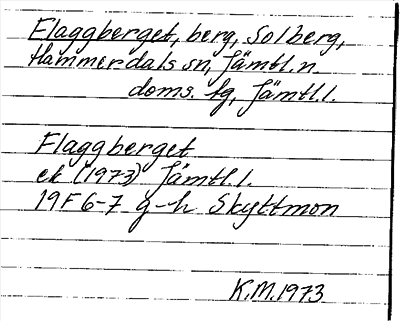 Flaggberget, berg, Solberg,
Hammerdals sn, Jämtl. n.
doms. fg, Jämtl. l.
Flaggberget
ek (1973) Jämtl. l.
19F 6-7 g-h Skyttmon
K.M. 1973